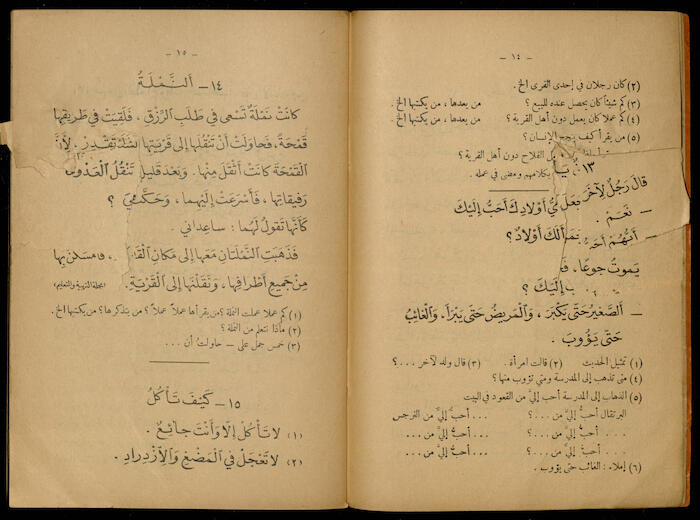 - ١٤ -
(٢) كان رجلان في إحدى القرى الخ.
(٣) كم شيئاً كان يحصل عنده للبيع ؟ من بعدها ، من يكتبها الخ.
(٤) كم عملا كان يعمل دون أهل القرية ؟ من بعدها ، من يكتبها الخ.
(٥) من يقرأ كيف ينجح الإنسان ؟
الفلاح دون أهل القرية ؟
١٣
بكلامهم ومضى في عمله .
قَالَ رَجُلٌ لِآخَرَ
أَوْلَادِكَ أَحَبُّ إِلَيْكَ
— نَعَمْ .
— أَيُّهُمْ
لَكَ أَوْلَادٌ ؟
يَمُوتُ جُوعًا ،
إِلَيْكَ ؟
— اَلصَّغِيرُ حَتَّى يَكْبَرَ ، وَالْمَرِيضُ حَتَّى يَبْرَأَ ، وَالْغَائِبُ
حَتَّى يَؤُوبَ .
(١) تمثيل الحديث (٢) قالت امرأة . (٣) قال ولد لآخر ...؟
(٤) متى تذهب إلى المدرسة ومتى تؤوب منها ؟
(٥) الذهاب إلى المدرسة أحب إليّ من القعود في البيت
البرتقال أحبُّ إليَّ من ...؟ ... أحبُّ إليَّ من النرجس
... أحبُّ إليَّ من ...؟ ... أحبُّ إليَّ من ...
... أحبُّ إليَّ من ...؟ ... أحبُّ إليَّ من ...
(٦) إملاء : الغائب حتى يؤوب .
- ١٥ -
١٤ — اَلنَّمْلَةُ
كَانَتْ نَمْلَةٌ تَسْعَى فِي طَلَبِ الرِّزْقِ ، فَلَقِيَتْ فِي طَرِيقِهَا
قَمْحَةً ، فَحَاوَلَتْ أَنْ تَنْقُلَهَا إِلَى قَرْيَتِهَا فَلَمْ تَقْدِرْ . لِأَنَّ
الْقَمْحَةَ كَانَتْ أَثْقَلَ مِنْهَا . وَبَعْدَ قَلِيلٍ
رَفِيقَاتِهَا ، فَأَسْرَعَتْ إِلَيْهِمَا ،
كَأَنَّهَا تَقُولُ لَهُمَا : سَاعِدَانِي .
فَذَهَبَتِ النَّمْلَتَانِ مَعَهَا إِلَى مَكَانِ
مِنْ جَمِيعِ أَطْرَافِهَا ، وَنَقَلْنَهَا إِلَى الْقَرْيَةِ . (مجلة التربية والتعليم)
(١) كم عملا عملت النملة ؟ من يقرأها عملاً عملاً ؟ من يتذكرها ؟ من يكتبها الخ.
(٢) ماذا نتعلم من النملة ؟
(٣) خمس جمل على — حاولتُ أن ...
١٥ — كَيْفَ تَأْكُلُ
(١) لَا تَأْكُلْ إِلَّا وَأَنْتَ جَائِعٌ .
(٢) لَا تَعْجَلْ فِي الْمَضْغِ وَالْاِزْدِرَادِ .